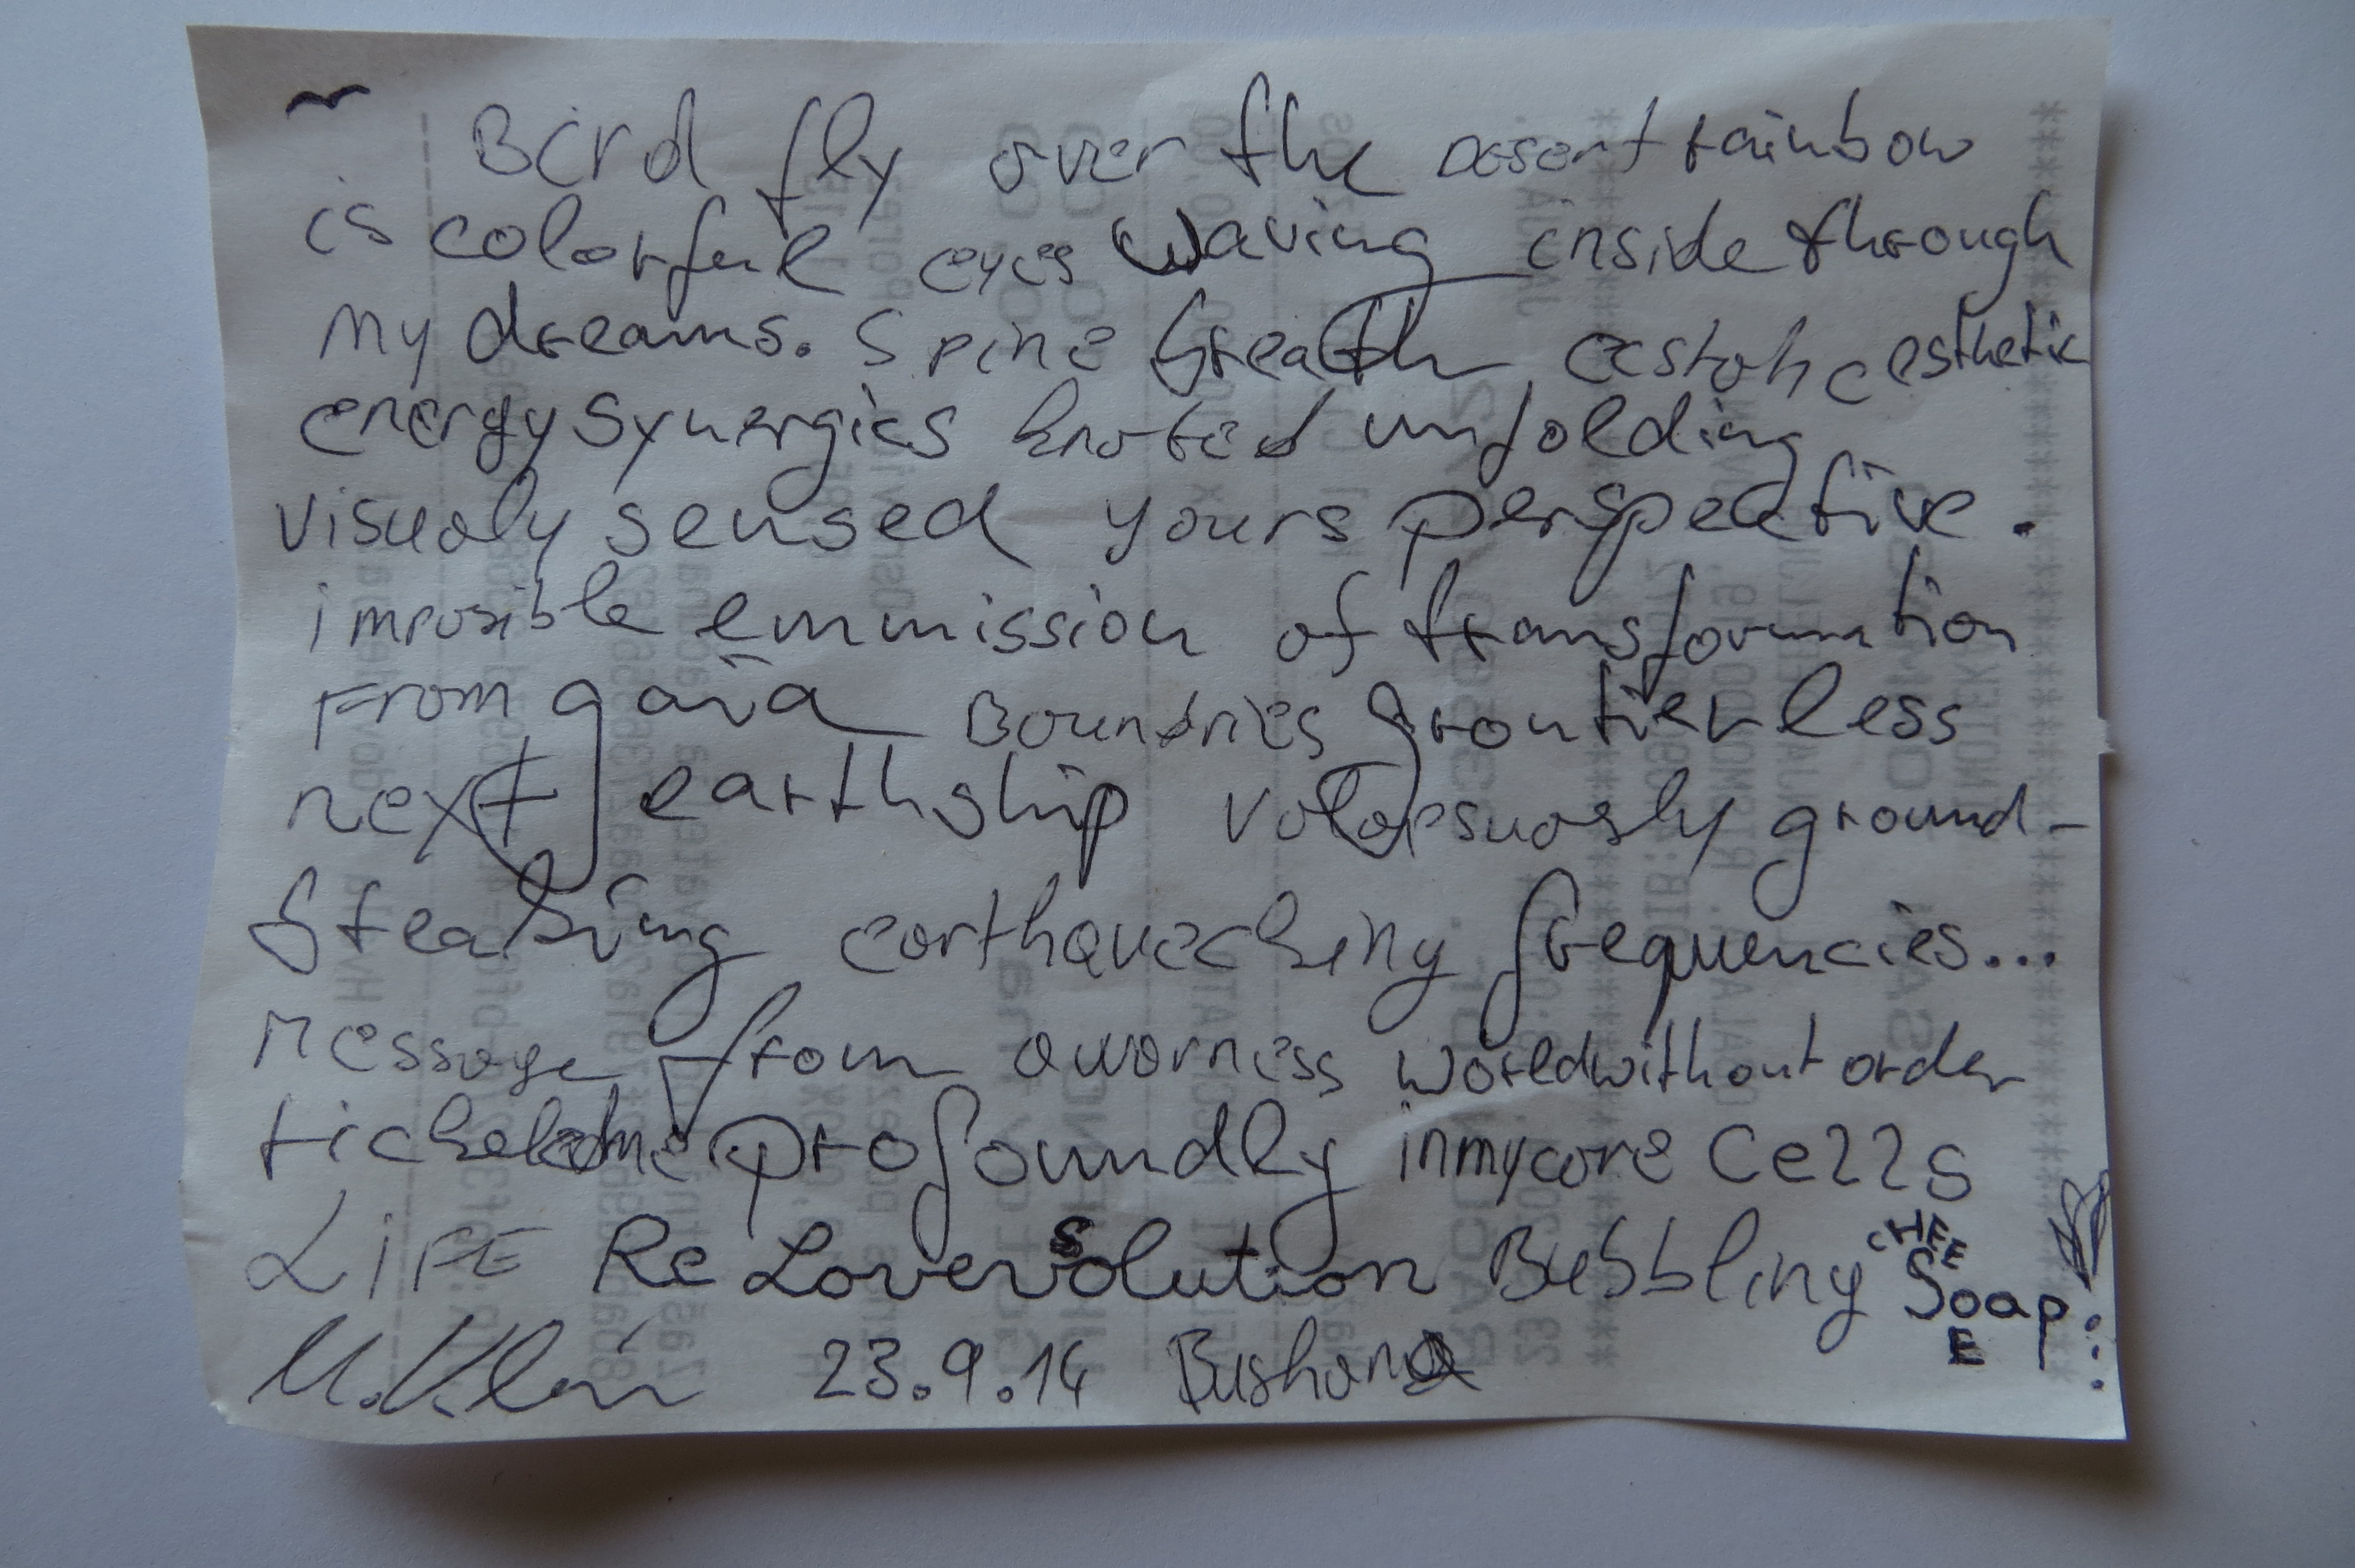 Bird fly over the desert rainbow
is colorful eyes waving inside through
My dreams. Spine breath esthetic
energy synergies knoted unfolding
visualy sensed yours perspective.
imposible emmission of transformation
From gaia Boundries frontierless
next earthship volopsuosly ground-
breaking earthquacking frequencies...
Message from aworness worldwithout order
profoundly inmycore Cells
LIFE Re Lovevsolution Bubbling CHEE
Soap:
E
23.9.14